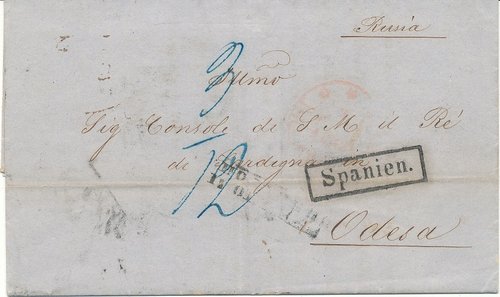 Rusia
3
Illmo
Sig Console di S M il Ré
di Sardegna in
12
Spanien.
Odesa